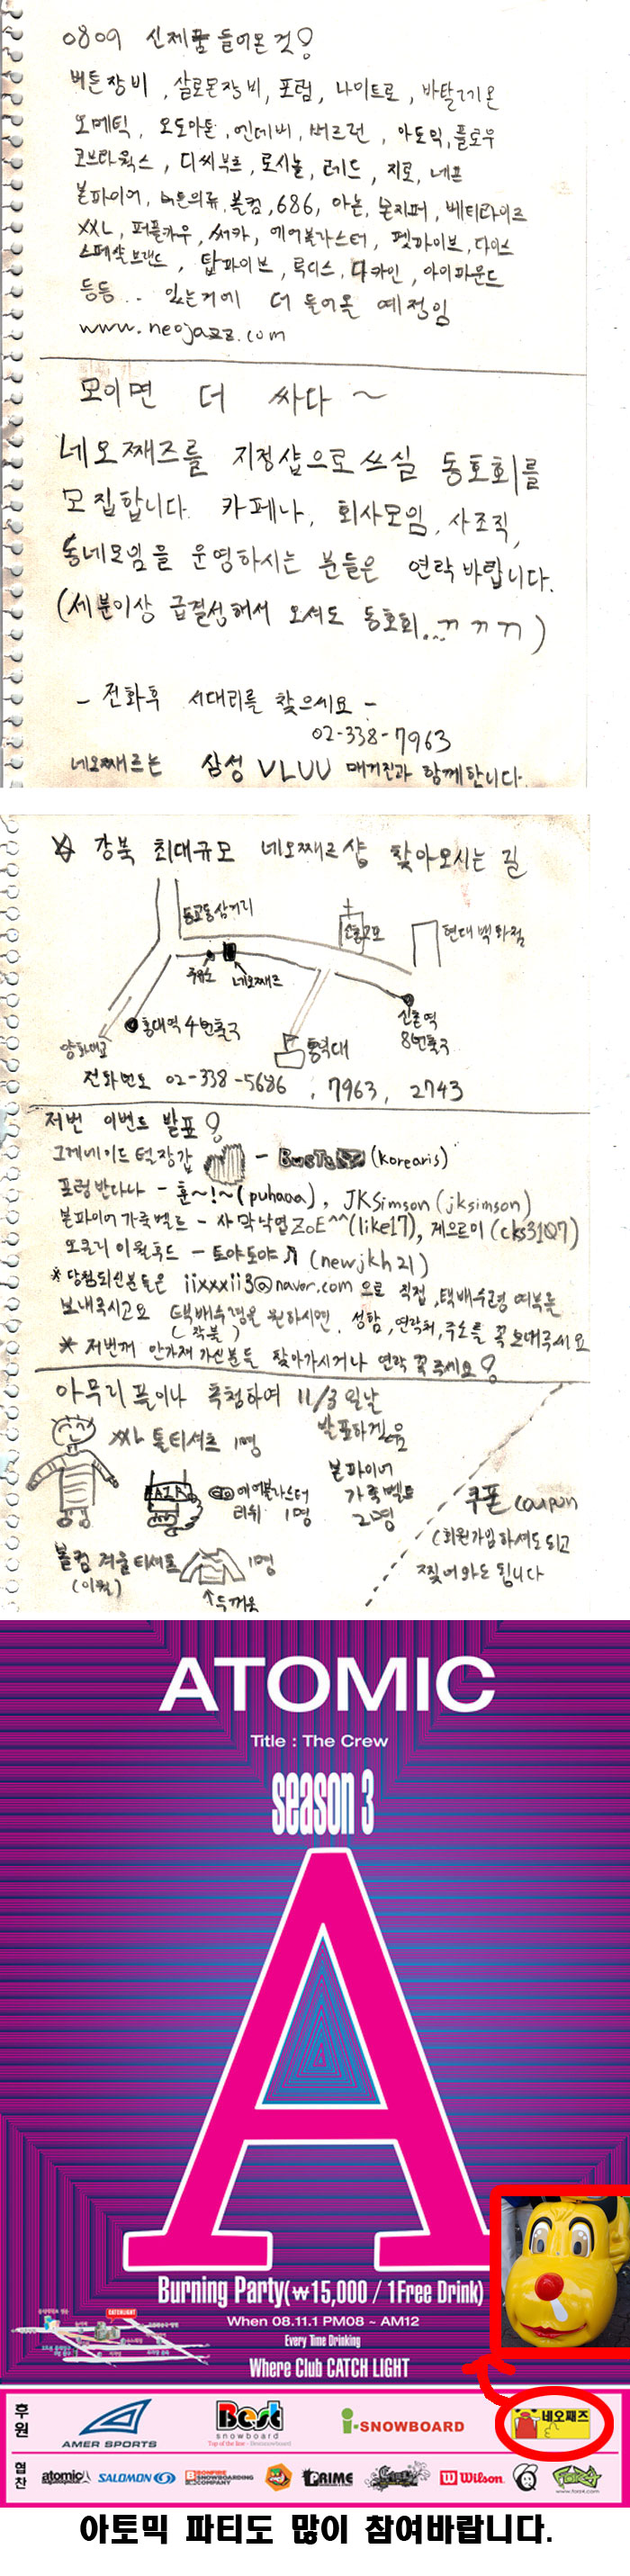 0809 신제품 들어온 것!
버튼장비, 살로몬장비, 포럼, 나이트로, 바탈리온
오메틱, 오도아톤, 엔데버, 버르런, 아토믹, 플로우
코브라웍스, 디씨부츠, 로시놀, 레드, 지로, 네프
본파이어, 버튼의류, 볼컴, 686, 아논, 본지퍼, 베티라이즈
XXL, 퍼플카우, 써카, 에어블라스터, 펫파이브, 다이스
스페셜브랜드, 탑파이브, 록디스, 다카인, 아이파운드
등등.. 있는거에 더 들어올 예정임
www.neojazz.com
모이면 더 싸다 ~
네오째즈를 지정샵으로 쓰실 동호회를
모집합니다. 카페나, 회사모임, 사조직,
동네모임을 운영하시는 분들은 연락바랍니다.
(세분이상 급결성해서 오셔도 동호회...ㄲㄲㄲ)
- 전화후 서대리를 찾으세요 -
02-338-7963
네오째즈는 삼성 VLUU 매거진과 함께한다.
강북 최대규모 네오째즈 샵 찾아오시는 길
동교동삼거리
현대백화점
주유소
네오째즈
홍대역 4번출구
신촌역
8번출구
양화대교
전화번호 02-338-5686, 7963, 2743
저번 이벤트 발표!
그레네이드 털장갑 - (korearis)
포럼반다나 - 훈~!~(puhaaa), JKSimson(jksimson)
본파이어 가죽벨트 - 사막낙엽ZoE^^(like17), 게으르미(cks3107)
오클리 이월후드 - 토야도야♬(newjkh21)
*당첨되신분들은 iixxxii3@naver.com으로 직접, 택배수령 여부를
보내주시고요 택배수령을 원하시면, 성함, 연락처, 주소를 꼭 보내주세요
(착불)
* 저번께 안가져가신분들 찾아가시거나 연락 꼭 주세요!
아무리플이나 추첨하여 11/3일날
발표하겠음
XXL 톨티셔츠 1명
에어블라스터
티위 1명
본파이어
가죽벨트
2명
볼컴 겨울티셔츠 1명
(이월)
↑두꺼움
쿠폰 coupon
(회원가입하셔도 되고
찢어와도 됩니다
ATOMIC
Title : The Crew
season 3
A
Burning Party(₩15,000 / 1Free Drink)
When 08.11.1 PM08 ~ AM12
Every Time Drinking
Where Club CATCH LIGHT
CATCHLIGHT
후원
AMER SPORTS
Best
snowboard
i-SNOWBOARD
네오째즈
협찬
atomic
SALOMON
BONFIRE
SNOWBOARDING
COMPANY
PRIME
Wilson
아토믹 파티도 많이 참여바랍니다.